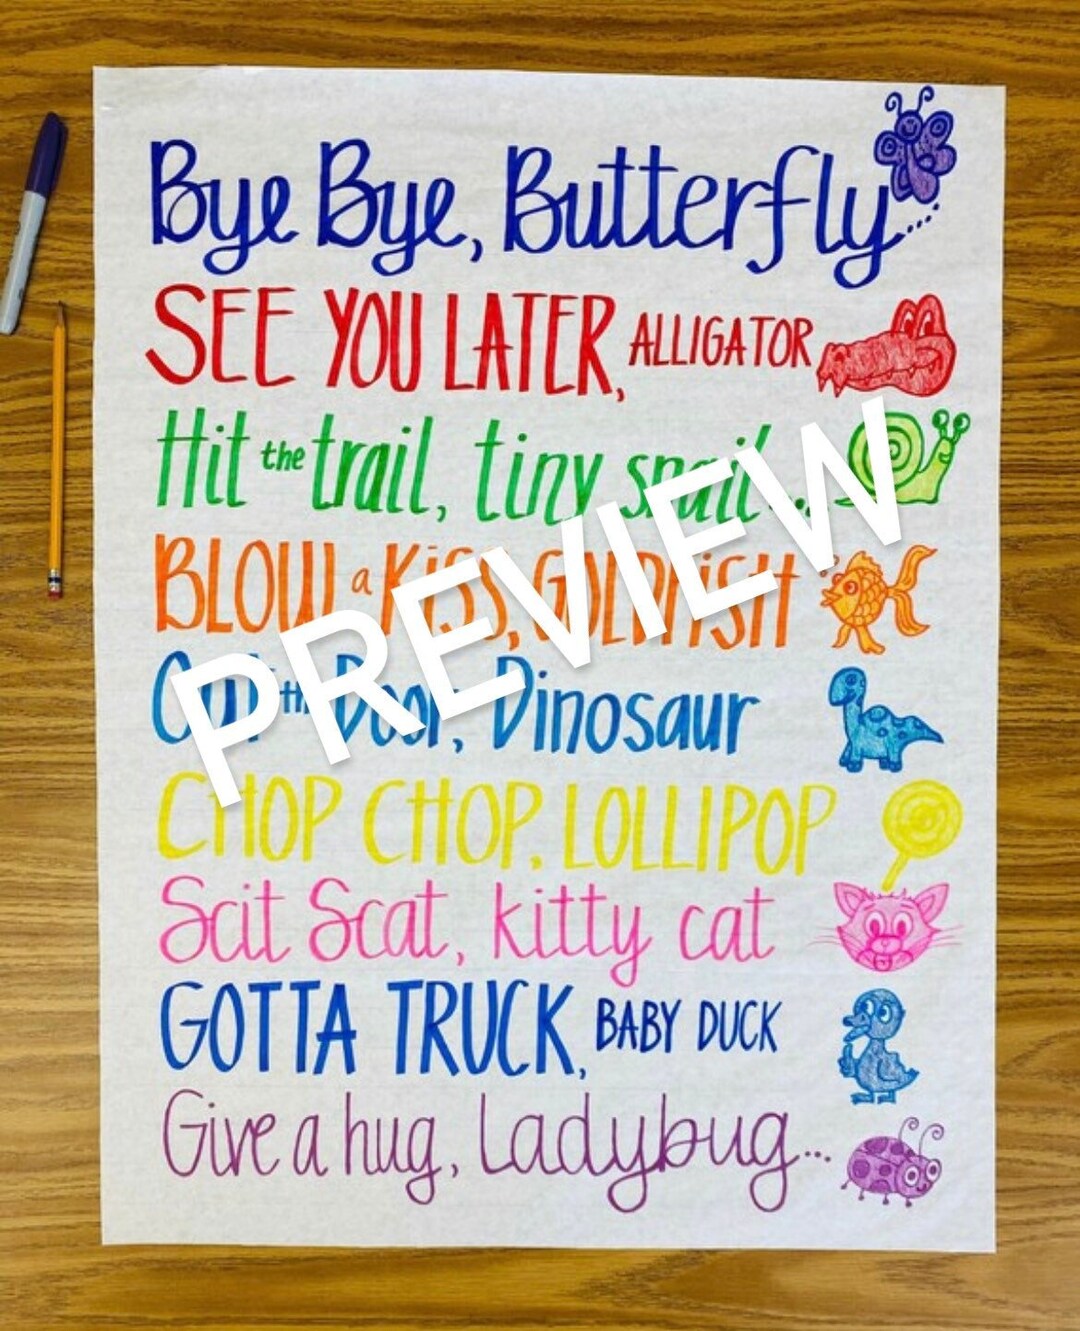 Bye Bye, Butterfly
SEE YOU LATER, ALLIGATOR
Hit the trail, tiny snail...
BLOW a KiSS, GOLDFiSH
Out the Door, Dinosaur
CHOP CHOP, LOLLIPOP
Scit Scat, kitty cat
GOTTA TRUCK, BABY DUCK
Give a hug, Ladybug...
PREVIEW